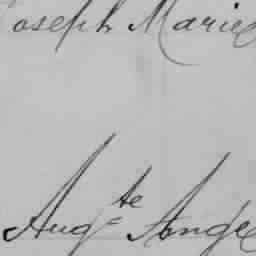 Joseph Marie
Aug^te Ange